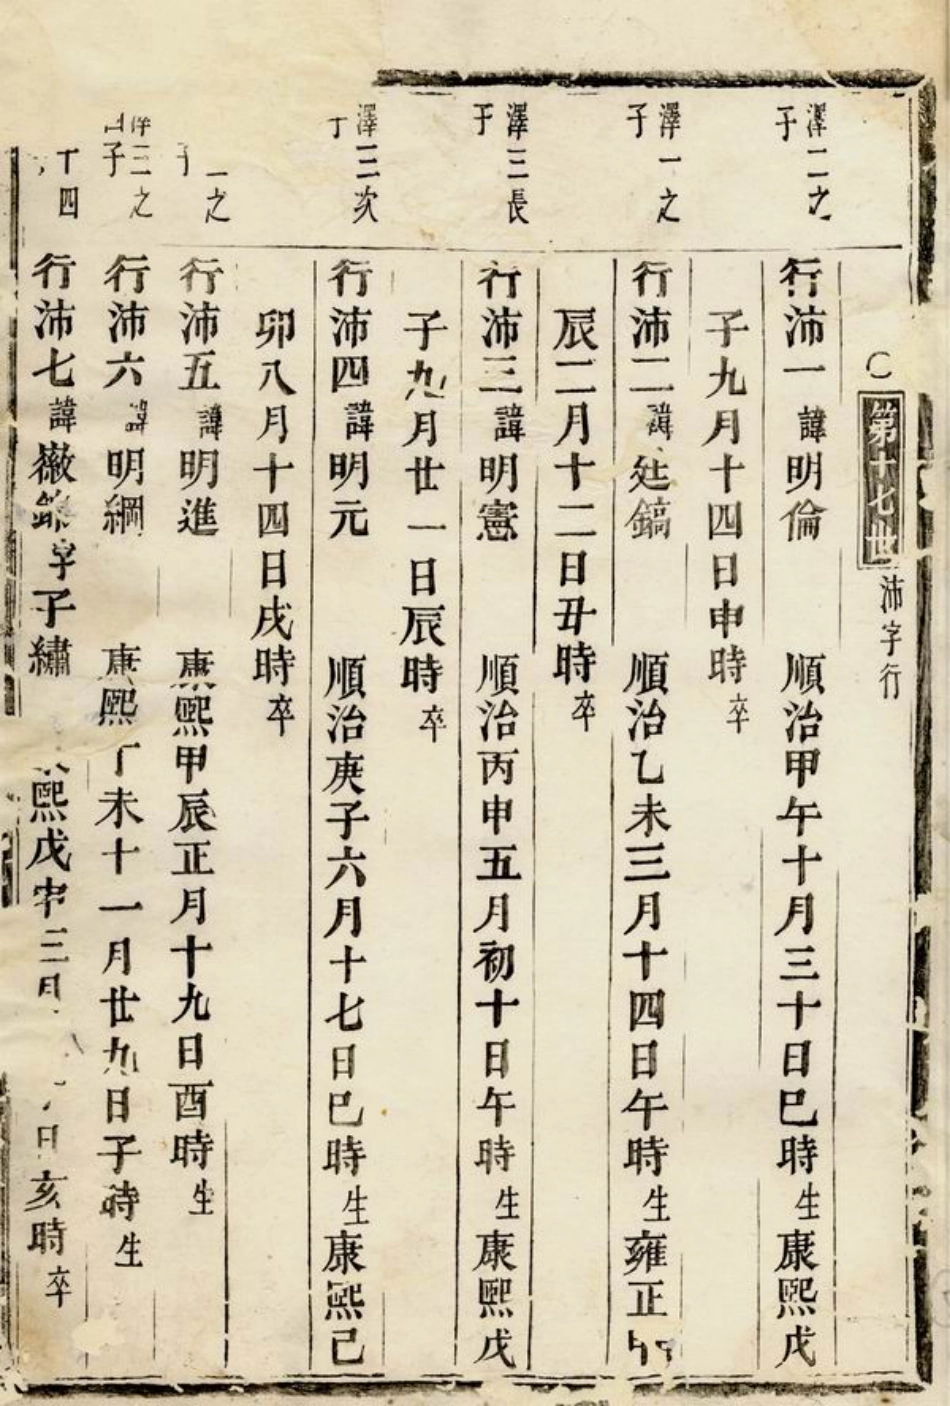 ○第十七世沛字行
澤二之子
行沛一諱明倫 順治甲午十月三十日巳時生康熙戊
子九月十四日申時卒
澤一之子
行沛二諱廷鎬 順治乙未三月十四日午時生雍正
辰二月十二日丑時卒
澤三長子
行沛三諱明憲 順治丙申五月初十日午時生康熙戊
子九月廿一日辰時卒
澤三次
行沛四諱明元 順治庚子六月十七日巳時生康熙己
卯八月十四日戌時卒
一之
行沛五諱明進 康熙甲辰正月十九日酉時生
三之子
行沛六諱明綱 康熙丁未十一月廿九日子時生
四
行沛七諱徽 字子繡 熙戊申三月 日亥時卒